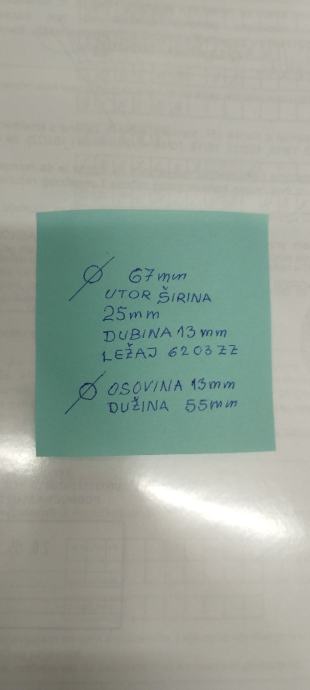 Ø 67mm
UTOR ŠIRINA
25mm
DUBINA 13mm
LEŽAJ 6203ZZ
Ø OSOVINA 13mm
DUŽINA 55mm